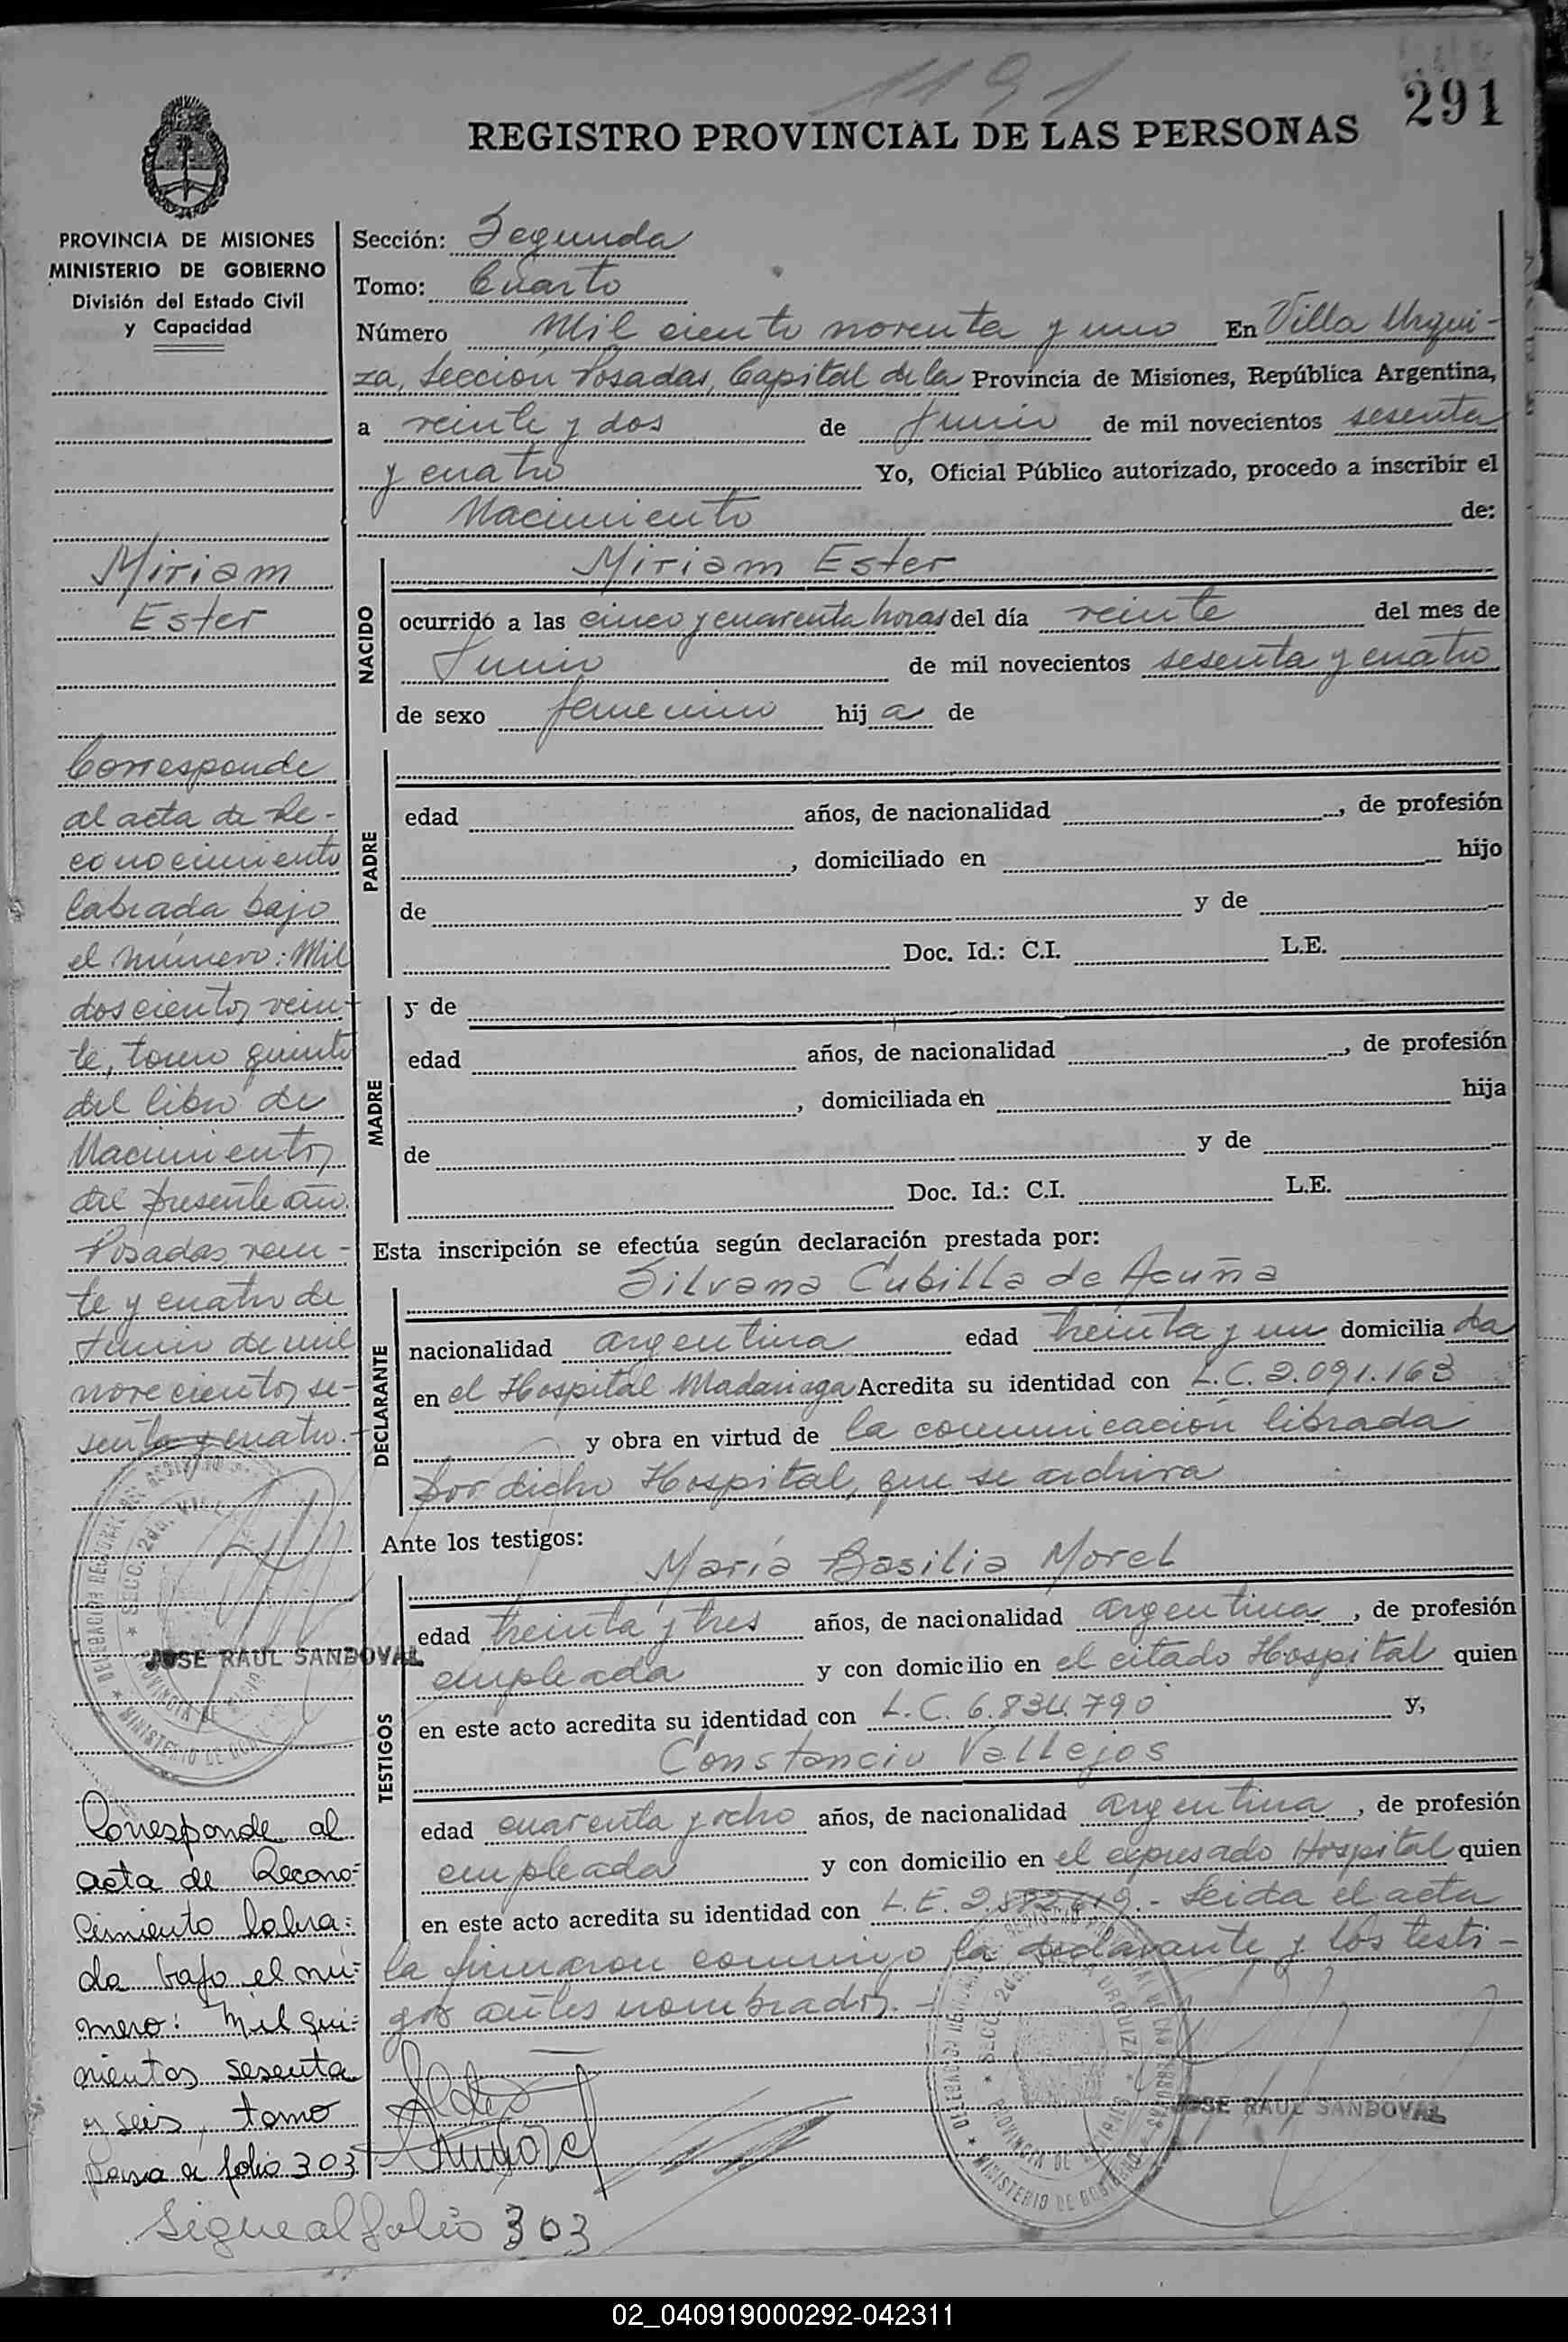 1191
291
REGISTRO PROVINCIAL DE LAS PERSONAS
PROVINCIA DE MISIONES
MINISTERIO DE GOBIERNO
División del Estado Civil
y Capacidad
Miriam
Ester
Corresponde
al acta de Re-
conocimiento
labrada bajo
el número: Mil
doscientos vein-
te, tomo quinto
del libro de
Nacimientos
del presente año.
Posadas, vein-
te y cuatro de
Junio de mil
novecientos se-
senta y cuatro.-
JOSE RAUL SANDOVAL
Corresponde al
acta de Recono=
cimiento labra=
da bajo el nú=
mero: Mil qui=
nientos sesenta
y seis, tomo
Pasa a folio 303
Sigue al folio 303
Sección: Segunda
Tomo: Cuarto
Número Mil ciento noventa y uno En Villa Urqui-
za, Sección Posadas, Capital de la Provincia de Misiones, República Argentina,
a veinte y dos de Junio de mil novecientos sesenta
y cuatro Yo, Oficial Público autorizado, procedo a inscribir el
Nacimiento de:
NACIDO
Miriam Ester
ocurrido a las cinco y cuarenta horas del día veinte del mes de
Junio de mil novecientos sesenta y cuatro
de sexo femenino hij a de
PADRE
edad años, de nacionalidad , de profesión
, domiciliado en hijo
de y de
Doc. Id.: C.I. L.E.
MADRE
y de
edad años, de nacionalidad , de profesión
, domiciliada en hija
de y de
Doc. Id.: C.I. L.E.
Esta inscripción se efectúa según declaración prestada por:
DECLARANTE
Silvana Cubilla de Acuña
nacionalidad argentina edad treinta y un domicilia da
en el Hospital Madariaga Acredita su identidad con L.C. 2.091.163
y obra en virtud de la comunicación librada
por dicho Hospital, que se archiva
Ante los testigos:
TESTIGOS
María Basilia Morel
edad treinta y tres años, de nacionalidad argentina , de profesión
empleada y con domicilio en el citado Hospital quien
en este acto acredita su identidad con L.C. 6.834.790 y,
Constancio Vallejos
edad cuarenta y ocho años, de nacionalidad argentina , de profesión
empleada y con domicilio en el expresado Hospital quien
en este acto acredita su identidad con L.E. - Leida el acta
la firmaron conmigo la declarante y los testi-
gos antes nombrados.-
JOSE RAUL SANDOVAL
02_040919000292-042311